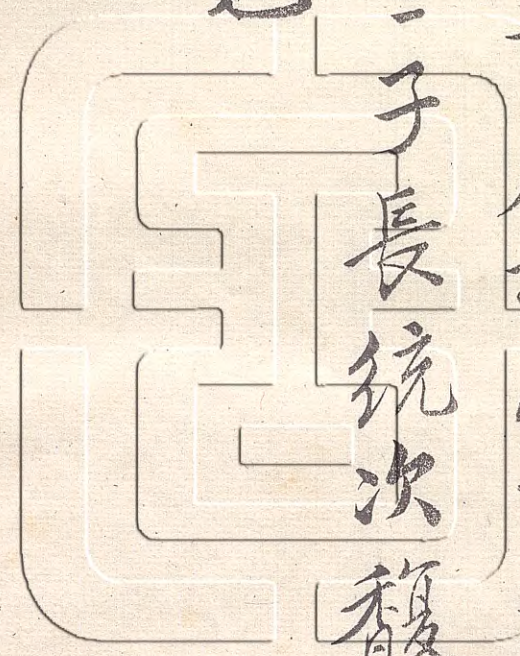 子長統次馥